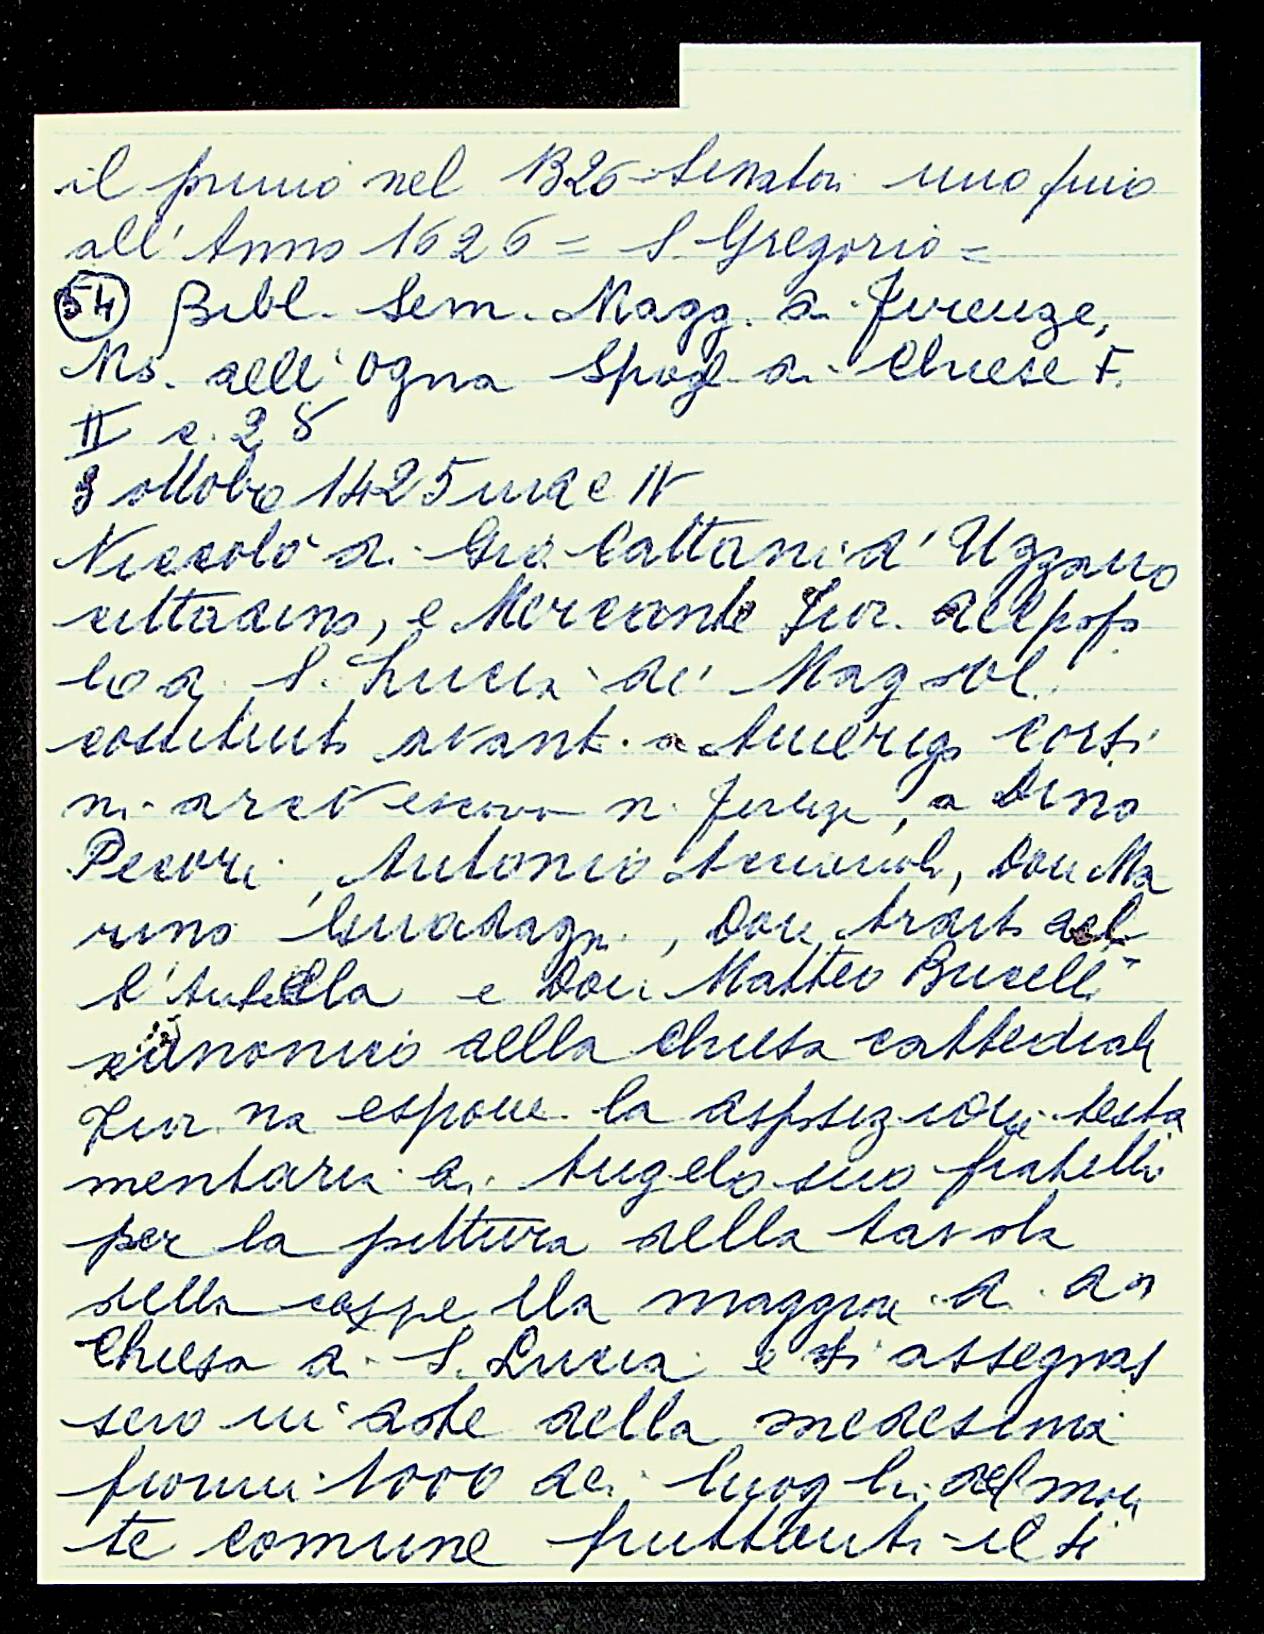 il primo nel 1326 Senatori uno fino
all'Anno 1626 = S Gregorio =
54 Bibl. Sem. Magg. di Firenze,
Ms. dell'Ogna Spogl di Chiese F.
II c. 28
8 ottobre 1425 ind e IV
Niccolò di Gio Cattani d'Uzzano
cittadino, e Mercante Fior. del popo
lo di S. Lucia de' Magnoli
costituito avanti a Amerigo Corsi
ni arcivescovo n. Firenze, a Dino
Pecori, Antonio Acciaioli, Don Ma
rino Guadagni, Don del
l'Antella e Don Matteo Bucelli
canonici della Chiesa cattedrale
Fior. na espone la disposizione testa
mentaria di Angelo suo fratello
per la pittura della tavola
della cappella maggiore di da
Chiesa di S. Lucia e si assegnas
sero in dote della medesima
fiorini 1000 dei luoghi del mon
te comune fruttanti il ti